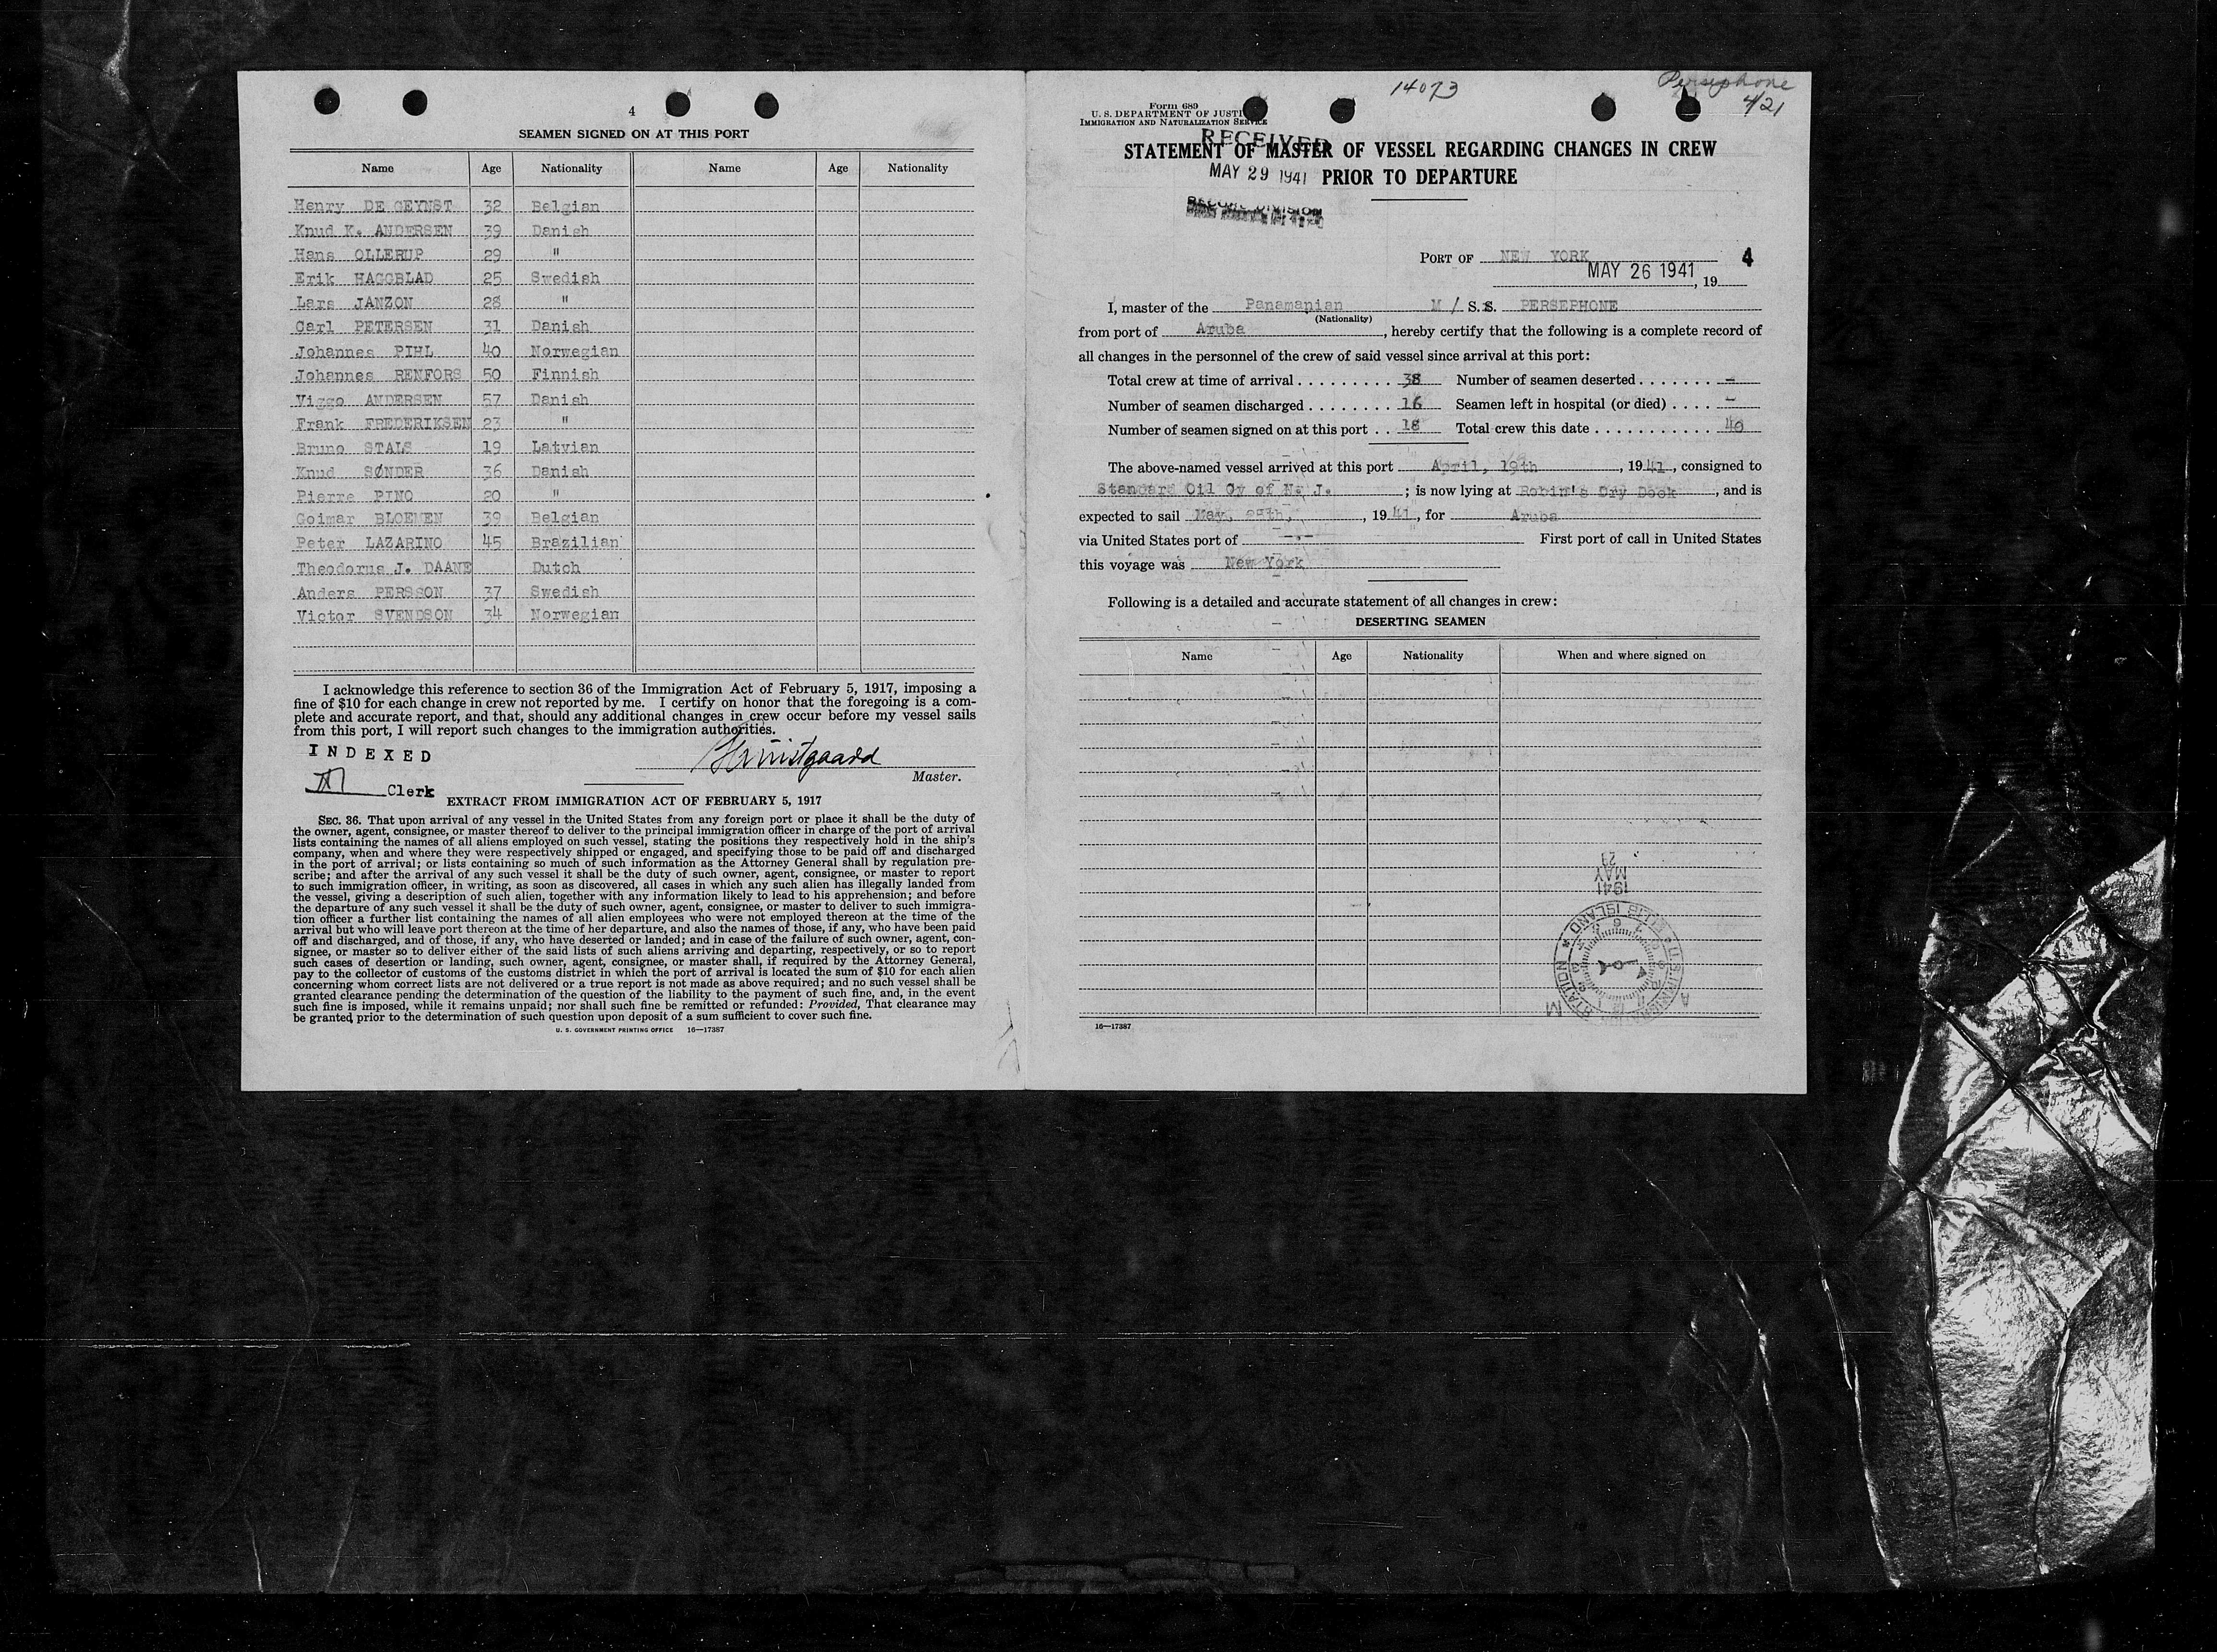 4
SEAMEN SIGNED ON AT THIS PORT
Name Age Nationality Name Age Nationality
Henry DE GEYNST 32 Belgian
Knud K. ANDERSEN 39 Danish
Hans OLLERUP 29 "
Erik HAGGBLAD 25 Swedish
Lars JANZON 28 "
Carl PETERSEN 31 Danish
Johannes PIHL 40 Norwegian
Johannes RENFORS 50 Finnish
Viggo ANDERSEN 57 Danish
Frank FREDERIKSEN 23 "
Bruno STALS 19 Latvian
Knud SØNDER 36 Danish
Pierre PINO 20 "
Goimar BLOEMEN 39 Belgian
Peter LAZARINO 45 Brazilian
Theodorus J. DAANE Dutch
Anders PERSSON 37 Swedish
Victor SVENDSON 34 Norwegian
I acknowledge this reference to section 36 of the Immigration Act of February 5, 1917, imposing a
fine of $10 for each change in crew not reported by me. I certify on honor that the foregoing is a com-
plete and accurate report, and that, should any additional changes in crew occur before my vessel sails
from this port, I will report such changes to the immigration authorities.
INDEXED
Master.
Clerk
EXTRACT FROM IMMIGRATION ACT OF FEBRUARY 5, 1917
SEC. 36. That upon arrival of any vessel in the United States from any foreign port or place it shall be the duty of
the owner, agent, consignee, or master thereof to deliver to the principal immigration officer in charge of the port of arrival
lists containing the names of all aliens employed on such vessel, stating the positions they respectively hold in the ship's
company, when and where they were respectively shipped or engaged, and specifying those to be paid off and discharged
in the port of arrival; or lists containing so much of such information as the Attorney General shall by regulation pre-
scribe; and after the arrival of any such vessel it shall be the duty of such owner, agent, consignee, or master to report
to such immigration officer, in writing, as soon as discovered, all cases in which any such alien has illegally landed from
the vessel, giving a description of such alien, together with any information likely to lead to his apprehension; and before
the departure of any such vessel it shall be the duty of such owner, agent, consignee, or master to deliver to such immigra-
tion officer a further list containing the names of all alien employees who were not employed thereon at the time of the
arrival but who will leave port thereon at the time of her departure, and also the names of those, if any, who have been paid
off and discharged, and of those, if any, who have deserted or landed; and in case of the failure of such owner, agent, con-
signee, or master so to deliver either of the said lists of such aliens arriving and departing, respectively, or so to report
such cases of desertion or landing, such owner, agent, consignee, or master shall, if required by the Attorney General,
pay to the collector of customs of the customs district in which the port of arrival is located the sum of $10 for each alien
concerning whom correct lists are not delivered or a true report is not made as above required; and no such vessel shall be
granted clearance pending the determination of the question of the liability to the payment of such fine, and, in the event
such fine is imposed, while it remains unpaid; nor shall such fine be remitted or refunded: Provided, That clearance may
be granted prior to the determination of such question upon deposit of a sum sufficient to cover such fine.
U. S. GOVERNMENT PRINTING OFFICE 16—17387
14073
Persephone
4/21
Form 689
U. S. DEPARTMENT OF JUSTICE
IMMIGRATION AND NATURALIZATION SERVICE
RECEIVED
STATEMENT OF MASTER OF VESSEL REGARDING CHANGES IN CREW
MAY 29 1941 PRIOR TO DEPARTURE
RECORD DIVISION
PORT OF NEW YORK 4
MAY 26 1941, 19
I, master of the Panamanian M / S.S. PERSEPHONE
(Nationality)
from port of Aruba, hereby certify that the following is a complete record of
all changes in the personnel of the crew of said vessel since arrival at this port:
Total crew at time of arrival . . . . . . . . . 38 Number of seamen deserted . . . . . . . -
Number of seamen discharged . . . . . . . . 16 Seamen left in hospital (or died) . . . . -
Number of seamen signed on at this port . . 18 Total crew this date . . . . . . . . . . . 40
The above-named vessel arrived at this port April, 19th, 1941, consigned to
Standard Oil Cy of N. J. ; is now lying at Robin's Dry Dock, and is
expected to sail May, 28th, , 1941, for Aruba
via United States port of -.- First port of call in United States
this voyage was New York
Following is a detailed and accurate statement of all changes in crew:
DESERTING SEAMEN
Name Age Nationality When and where signed on
1941
MAY
29
U.S. IMMIGRATION STATION ELLIS ISLAND
A M
16—17387